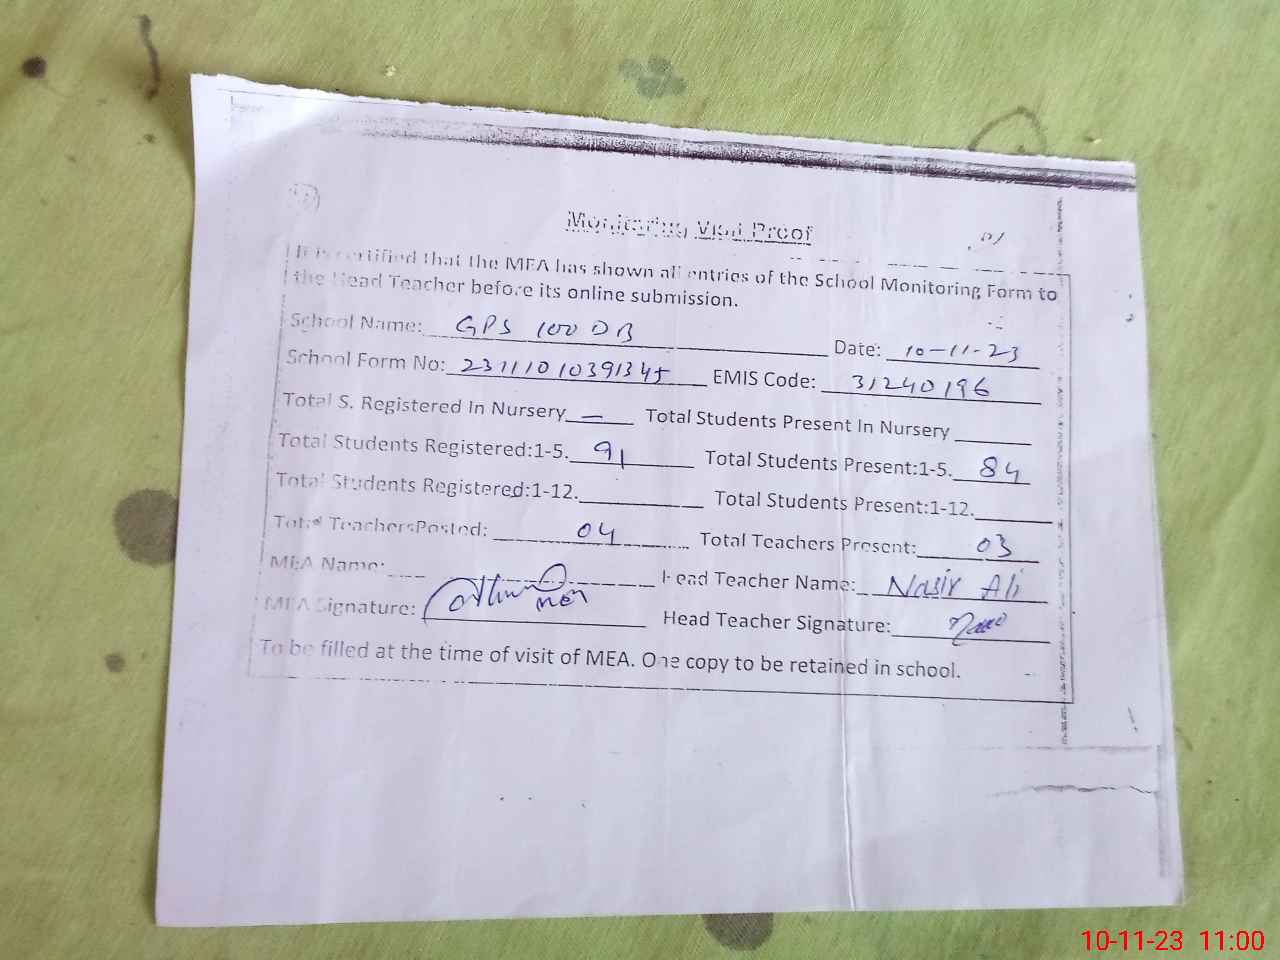 Monitoring Visit Proof
It is certified that the MEA has shown all entries of the School Monitoring Form to
the Head Teacher before its online submission.
School Name: GPS 100 DB Date: 10-11-23
School Form No: 23111010391345 EMIS Code: 31240196
Total S. Registered In Nursery — Total Students Present In Nursery
Total Students Registered:1-5. 91 Total Students Present:1-5. 84
Total Students Registered:1-12. Total Students Present:1-12.
Total TeachersPosted: 04 Total Teachers Present: 03
MEA Name: Head Teacher Name: Nasir Ali
MEA Signature: MEA Head Teacher Signature:
To be filled at the time of visit of MEA. One copy to be retained in school.
10-11-23 11:00